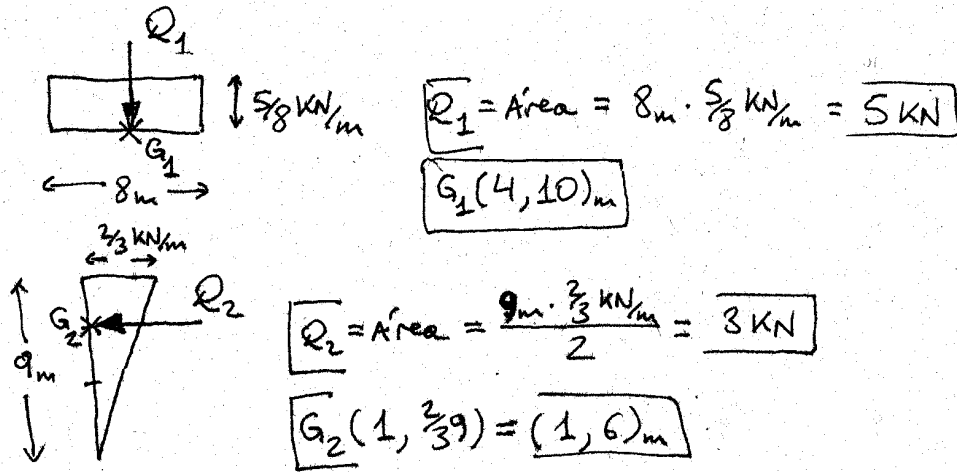 Q₁
5/8 KN/m
G₁
8m
Q₁ = Área = 8m · 5/8 KN/m = 5 KN
G₁(4,10)m
2/3 KN/m
Q₂
G₂
9m
Q₂ = Área = 9m · 2/3 KN/m / 2 = 3 KN
G₂(1, 2/3 9) = (1, 6)m